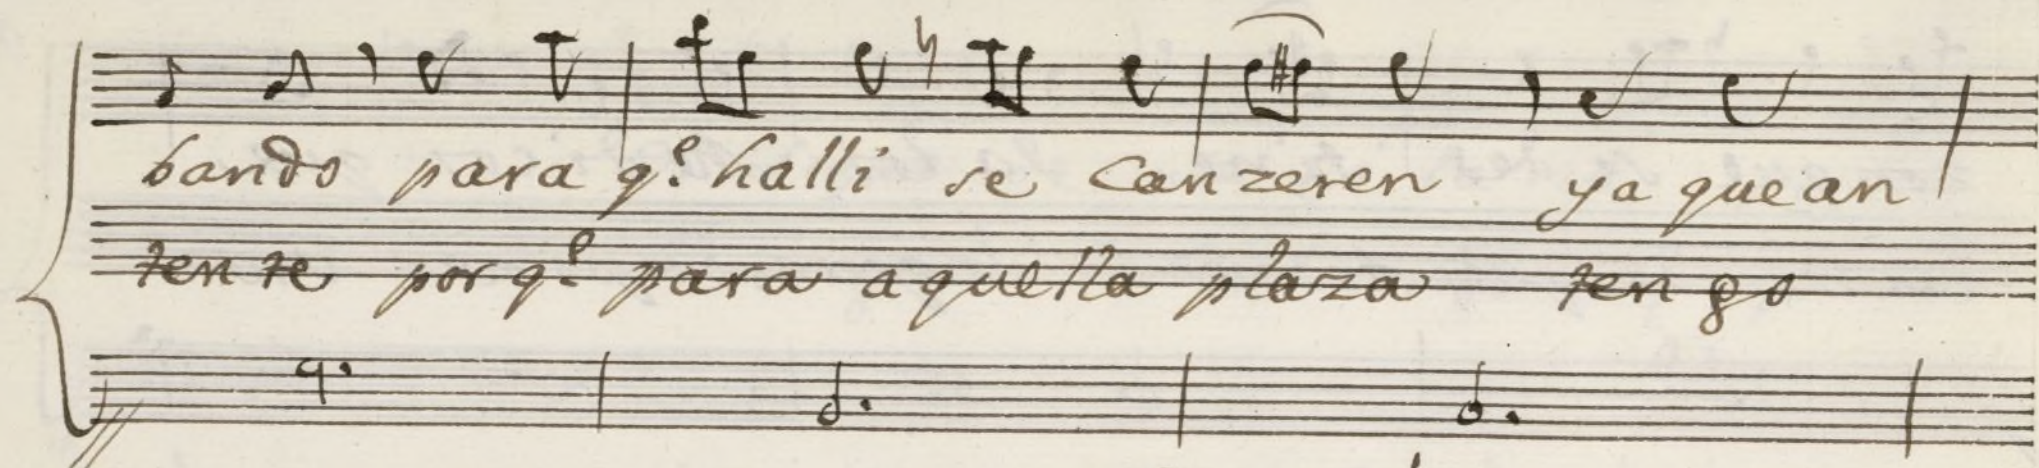 bando para q.e halli se canzeren ya que an
tente porq.e para aquella plaza tengo